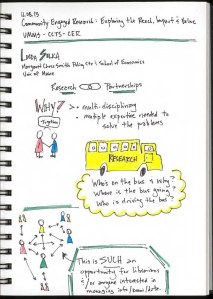 11.08.13
Community Engaged Research: Exploring the Reach, Impact & Value
UMMS - CCTS - CER
Linda Silka
Margaret Chase Smith Policy Ctr & School of Economics
Univ of Maine
Research Partnerships
Why?
• multi-disciplinary
• multiple expertise needed to
solve the problems
Together
RESEARCH
Who's on the bus & Why?
Where is the bus going?
Who is driving the bus?
This is SUCH an
opportunity for librarians
&/or anyone interested in
managing info/know/data.